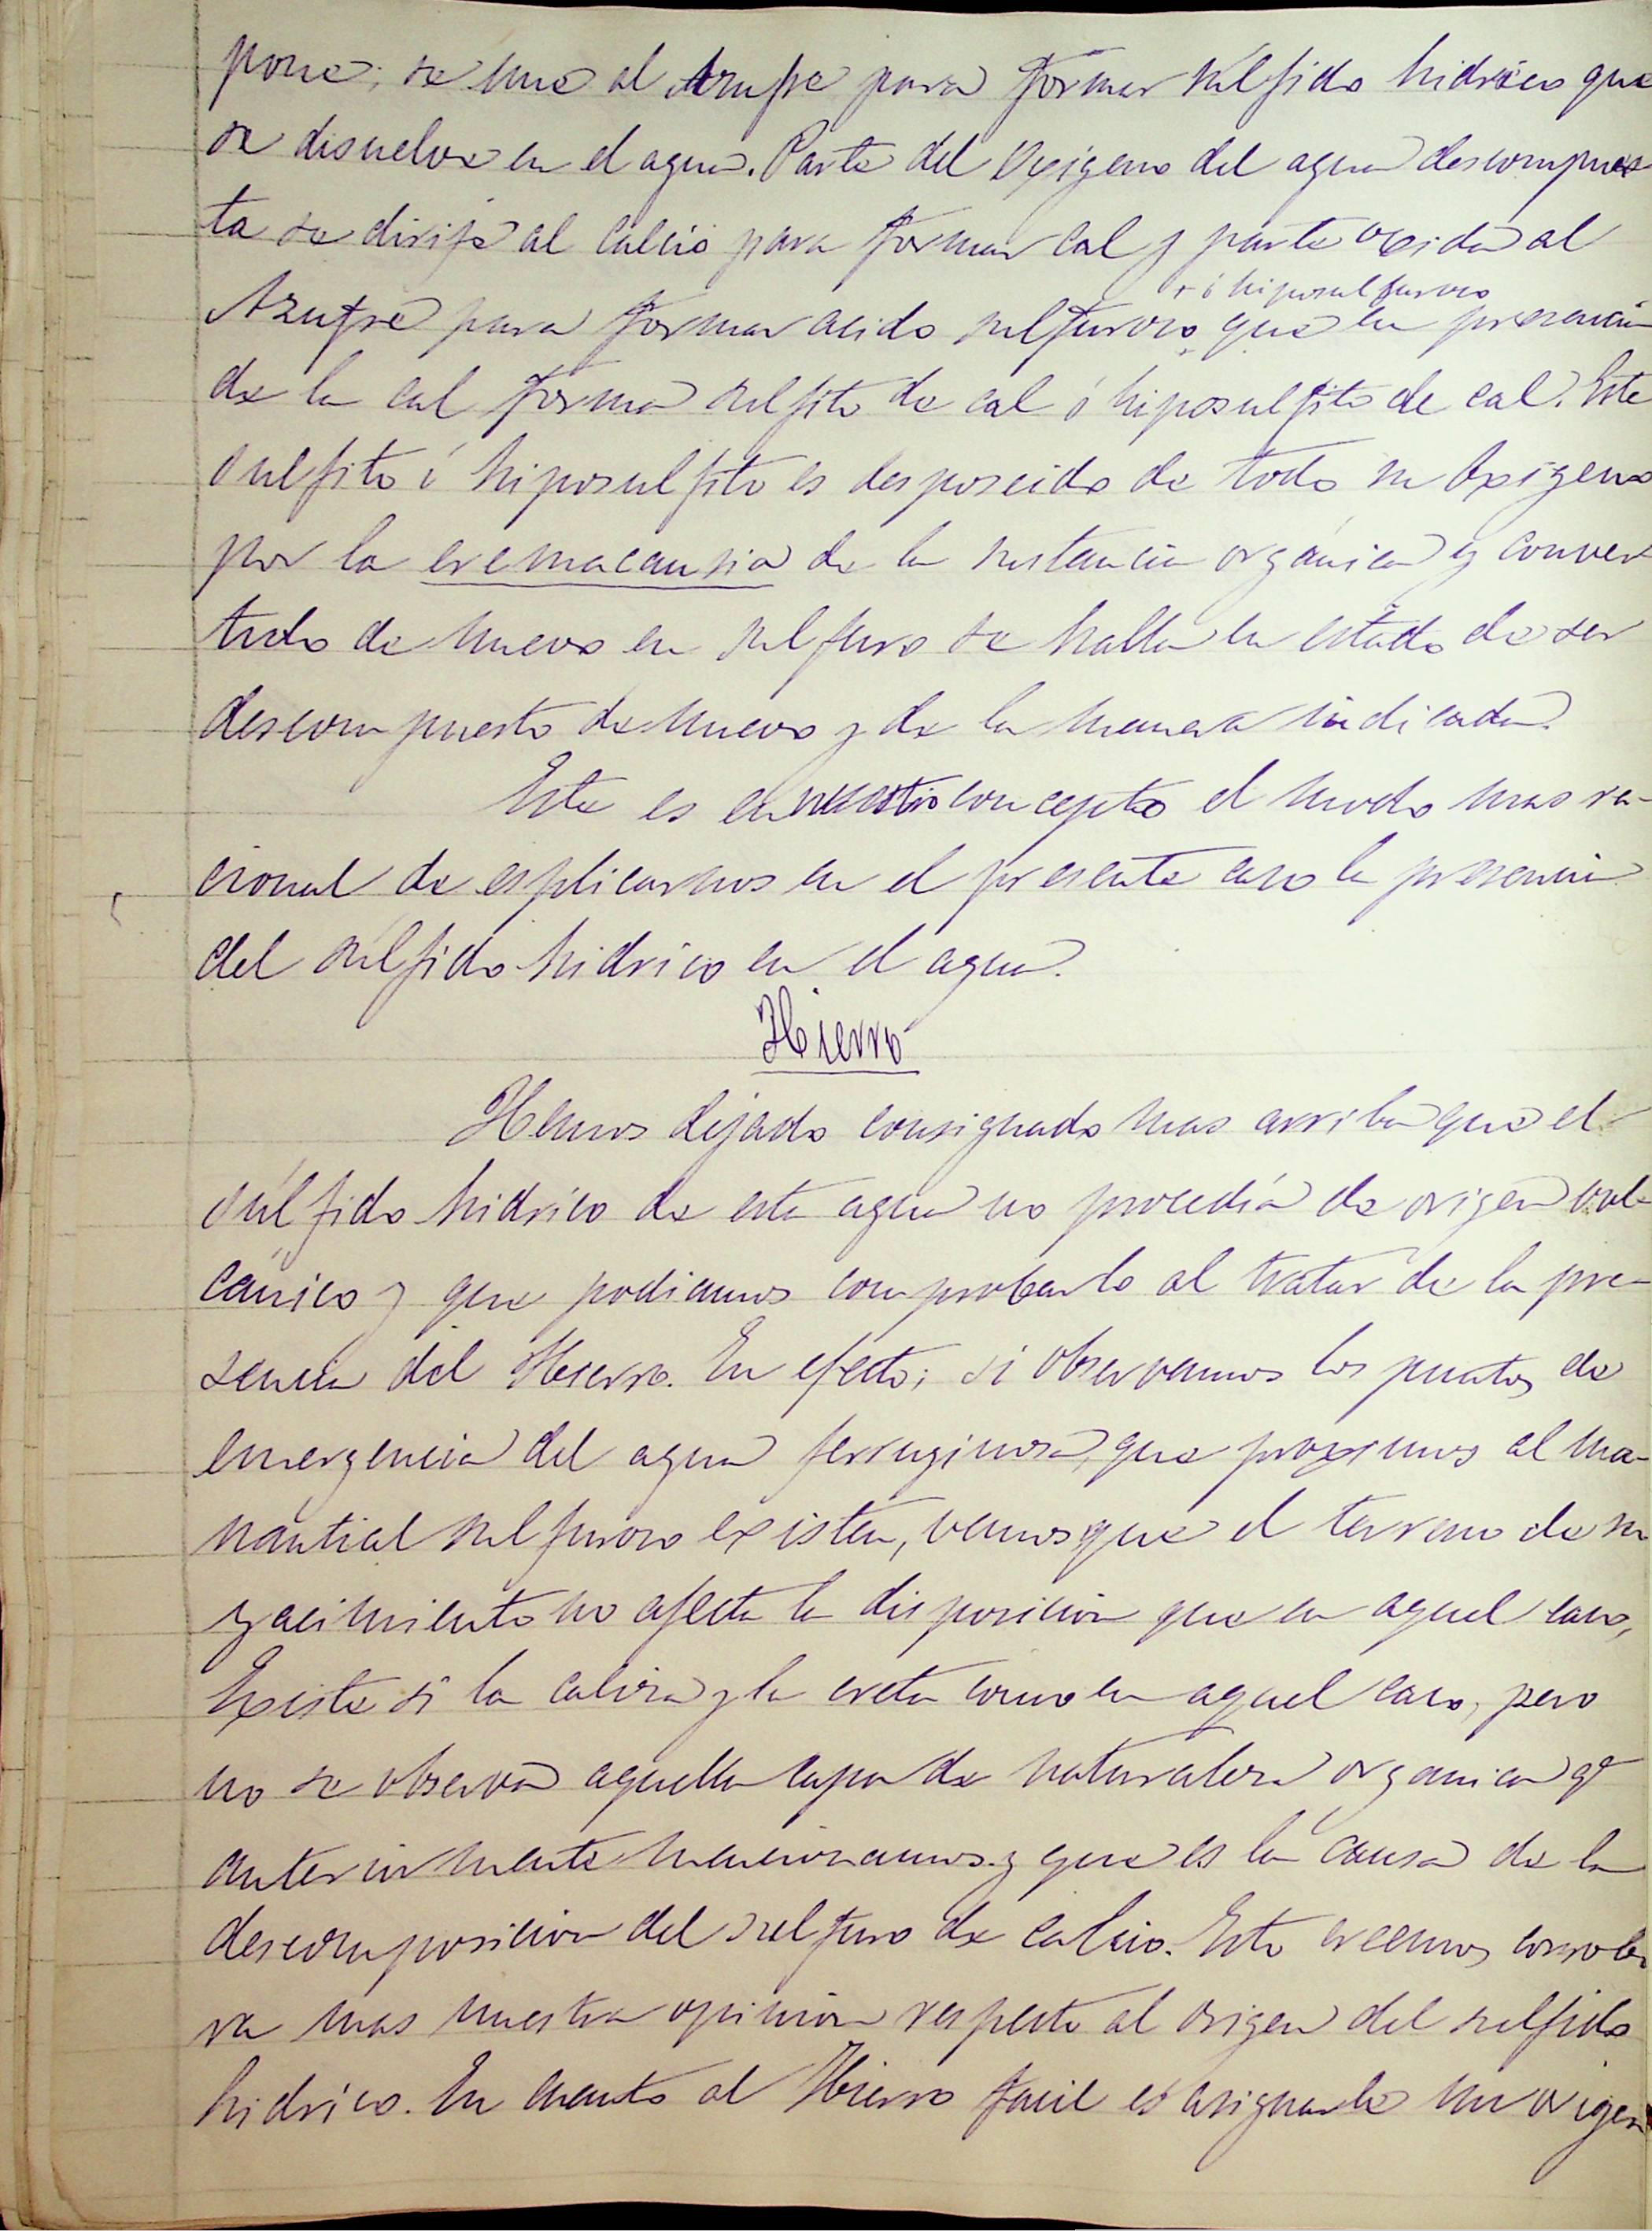 pone; se une al Azufre para formar sulfido hidrico que
se disuelve en el agua. Parte del Oxigeno del agua descompues
ta se dirije al calcio para formar cal y parte oxida al
+ ó hiposulfuroso
Azufre para formar acido sulfuroso + que en presencia
de la cal forma sulfito de cal ó hiposulfito de cal. Este
sulfito ó hiposulfito es desposeido de todo su Oxigeno
por la eremacausia de la sustancia orgánica y conver
tido de nuevo en sulfuro se halla en estado de ser
descompuesto de nuevo y de la manera indicada.
Este es en nuestro concepto el modo mas ra-
cional de esplicarnos en el presente caso la presencia
del sulfido hidrico en el agua.
Hierro
Hemos dejado consignado mas arriba que el
súlfido hidrico de esta agua no procedia de origen vol-
cánico y que podiamos comprobarlo al tratar de la pre-
sencia del Hierro. En efecto; si observamos los puntos de
emergencia del agua ferruginosa, que proximos al ma-
nantial sulfuroso existen, vemos que el terreno de su
yacimiento no afecta la disposicion que en aquel caso,
Existe si la caliza y la creta como en aquel caso, pero
no se observa aquella capa de naturaleza organica qe
anteriormente mencionamos y que es la causa de la
descomposicion del sulfuro de calcio. Esto creemos corrobo
ra mas nuestra opinion respecto al origen del sulfido
hidrico. En cuanto al Hierro facil es asignarle un origen